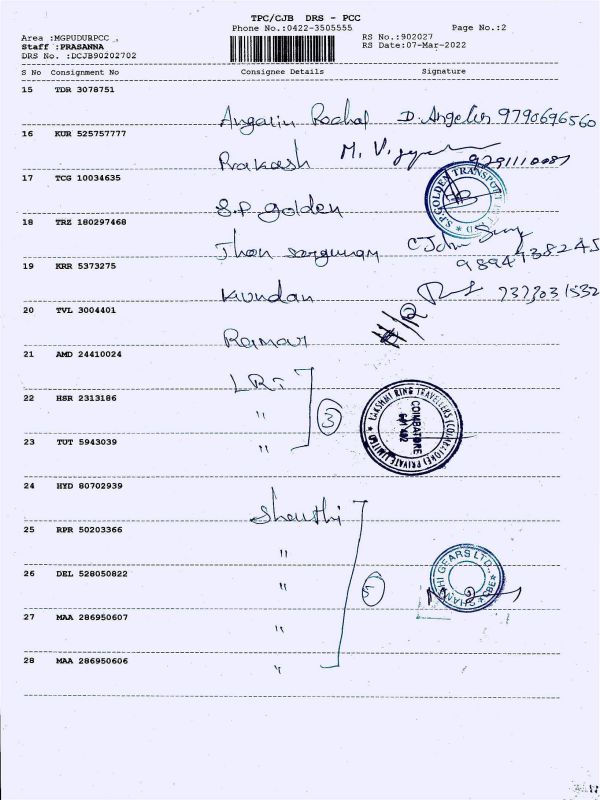 TPC/CJB DRS - PCC
Phone No.:0422-3505555 Page No.:2
Area :MGPUDURPCC RS No.:902027
Staff :PRASANNA RS Date:07-Mar-2022
DRS No. :DCJB90202702
S No Consignment No Consignee Details Signature
15 TDR 3078751
Angalin Rachal D. Angelin 9790696560
16 KUR 525757777
Prakash M.
17 TCG 10034635
S.P golden S.P. GOLDEN TRANSPORT
18 TRZ 180297468
Jhon 9894738245
19 KRR 5373275
Kundan
20 TVL 3004401
21 AMD 24410024
LRT
22 HSR 2313186
" 3 LAKSHMI RING TRAVELLERS (COIMBATORE) PRIVATE LIMITED COIMBATORE
23 TUT 5943039
"
24 HYD 80702939
Shanthi
25 RPR 50203366
"
26 DEL 528050822
" 5 SHANTHI GEARS LTD., CBE
27 MAA 286950607
"
28 MAA 286950606
"